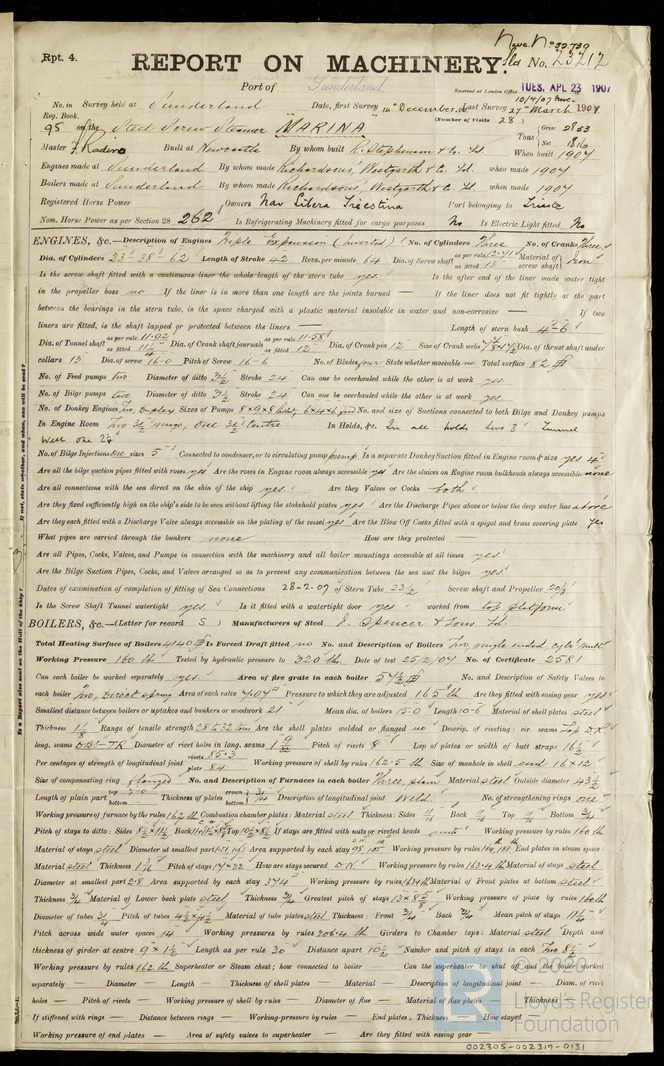 Rpt. 4.
REPORT ON MACHINERY.
No. 23212
Port of Sunderland
Received at London Office TUES. APL 23 1907
No. in Survey held at Sunderland Date, first Survey 14th December, 06 Last Survey 27th March 1907
Reg. Book. (Number of Visits 28)
95 on the Steel Screw Steamer "MARINA" Tons Gross 2853 Net 1816
Master Built at Newcastle By whom built R. Stephenson & Co. Ld. When built 1907
Engines made at Sunderland By whom made Richardsons, Westgarth & Co. Ld. when made 1907
Boilers made at Sunderland By whom made Richardsons, Westgarth & Co. Ld when made 1907
Registered Horse Power Owners Nav. Libera Triestina Port belonging to Trieste
Nom. Horse Power as per Section 28 262 Is Refrigerating Machinery fitted for cargo purposes No Is Electric Light fitted No
ENGINES, &c.—Description of Engines Triple Expansion (Inverted) No. of Cylinders Three No. of Cranks Three
Dia. of Cylinders 23" 38" 62" Length of Stroke 42 Revs. per minute 64 Dia. of Screw shaft as per rule as fitted 13" Material of screw shaft Iron
Is the screw shaft fitted with a continuous liner the whole length of the stern tube yes. Is the after end of the liner made water tight
in the propeller boss no If the liner is in more than one length are the joints burned — If the liner does not fit tightly at the part
between the bearings in the stern tube, is the space charged with a plastic material insoluble in water and non-corrosive — If two
liners are fitted, is the shaft lapped or protected between the liners — Length of stern bush 4-6
Dia. of Tunnel shaft as per rule 11.02 as fitted 11¼ Dia. of Crank shaft journals as per rule 11.58 as fitted 12 Dia. of Crank pin 12 Size of Crank webs Dia. of thrust shaft under
collars 13 Dia. of screw 16-0 Pitch of Screw 16-6 No. of Blades four State whether moveable no Total surface 82
No. of Feed pumps two Diameter of ditto 3½ Stroke 24 Can one be overhauled while the other is at work yes.
No. of Bilge pumps two Diameter of ditto 3½ Stroke 24 Can one be overhauled while the other is at work yes.
No. of Donkey Engines Two, Duplex Sizes of Pumps 8×9×8 6×4×6 feed No. and size of Suctions connected to both Bilge and Donkey pumps
In Engine Room Two 3½ wings, one 3½ centre In Holds, &c. In all holds two 3" Tunnel
Well one 2½
No. of Bilge Injections one sizes 5 Connected to condenser, or to circulating pump pump Is a separate Donkey Suction fitted in Engine room & size yes 4"
Are all the bilge suction pipes fitted with roses yes Are the roses in Engine room always accessible yes Are the sluices on Engine room bulkheads always accessible none
Are all connections with the sea direct on the skin of the ship yes. Are they Valves or Cocks both
Are they fixed sufficiently high on the ship's side to be seen without lifting the stokehold plates yes Are the Discharge Pipes above or below the deep water line above
Are they each fitted with a Discharge Valve always accessible on the plating of the vessel yes Are the Blow Off Cocks fitted with a spigot and brass covering plate yes
What pipes are carried through the bunkers none How are they protected —
Are all Pipes, Cocks, Valves, and Pumps in connection with the machinery and all boiler mountings accessible at all times yes.
Are the Bilge Suction Pipes, Cocks, and Valves arranged so as to prevent any communication between the sea and the bilges yes.
Dates of examination of completion of fitting of Sea Connections 28-2-07 of Stern Tube 23/2 Screw shaft and Propeller 20/3
Is the Screw Shaft Tunnel watertight yes Is it fitted with a watertight door yes worked from top platform
BOILERS, &c.—(Letter for record S) Manufacturers of Steel J. Spencer & Sons Ld.
Total Heating Surface of Boilers 4140 Is Forced Draft fitted no No. and Description of Boilers Two, single ended, cyl. mult.
Working Pressure 160 lb Tested by hydraulic pressure to 320 lb. Date of test 25/2/07 No. of Certificate 2581
Can each boiler be worked separately yes. Area of fire grate in each boiler 57½ No. and Description of Safety Valves to
each boiler Two, Direct spring Area of each valve 7.07 Pressure to which they are adjusted 165 lb Are they fitted with easing gear yes
Smallest distance between boilers or uptakes and bunkers or woodwork 21 Mean dia. of boilers 15-0 Length 10-6 Material of shell plates steel
Thickness 1⅛ Range of tensile strength 28 to 32 tons Are the shell plates welded or flanged no Descrip. of riveting: cir. seams Lap D.R.
long. seams D.B.S.-T.R Diameter of rivet holes in long. seams 1 9/32 Pitch of rivets 8" Lap of plates or width of butt straps 16½
Per centages of strength of longitudinal joint rivets 85.3 plate 84 Working pressure of shell by rules 162.5 lb Size of manhole in shell end 16×12
Size of compensating ring flanged No. and Description of Furnaces in each boiler Three, plain Material steel Outside diameter 43½
Length of plain part top 7-0 bottom — Thickness of plates crown bottom Description of longitudinal joint Weld. No. of strengthening rings one
Working pressure of furnace by the rules 162 lb Combustion chamber plates: Material steel Thickness: Sides Back Top Bottom ¾
Pitch of stays to ditto: Sides Back Top If stays are fitted with nuts or riveted heads nuts Working pressure by rules 160 lb
Material of stays steel Diameter at smallest part Area supported by each stay Working pressure by rules End plates in steam space:
Material steel Thickness 1 3/16 Pitch of stays 17×22 How are stays secured D.N. Working pressure by rules 163.4 lb Material of stays steel
Diameter at smallest part 2.8 Area supported by each stay 374 Working pressure by rules Material of Front plates at bottom steel
Thickness Material of Lower back plate steel Thickness Greatest pitch of stays Working pressure of plate by rules 160 lb
Diameter of tubes 3¼ Pitch of tubes 4½×4½ Material of tube plates steel Thickness: Front ¾ Back ¾ Mean pitch of stays
Pitch across wide water spaces 14 Working pressures by rules 206.4 lb Girders to Chamber tops: Material steel Depth and
thickness of girder at centre 9×1½ Length as per rule 30 Distance apart 10½ Number and pitch of stays in each Two 8½
Working pressure by rules 162 lb Superheater or Steam chest; how connected to boiler — Can the superheater be shut off and the boiler worked
separately — Diameter — Length — Thickness of shell plates — Material — Description of longitudinal joint — Diam. of rivet
holes — Pitch of rivets — Working pressure of shell by rules — Diameter of flue — Material of flue plates — Thickness
If stiffened with rings — Distance between rings — Working pressure by rules — End plates: Thickness — How stayed —
Working pressure of end plates — Area of safety valves to superheater — Are they fitted with easing gear —
© 2020
Lloyd's Register
Foundation
002305-002319-0131